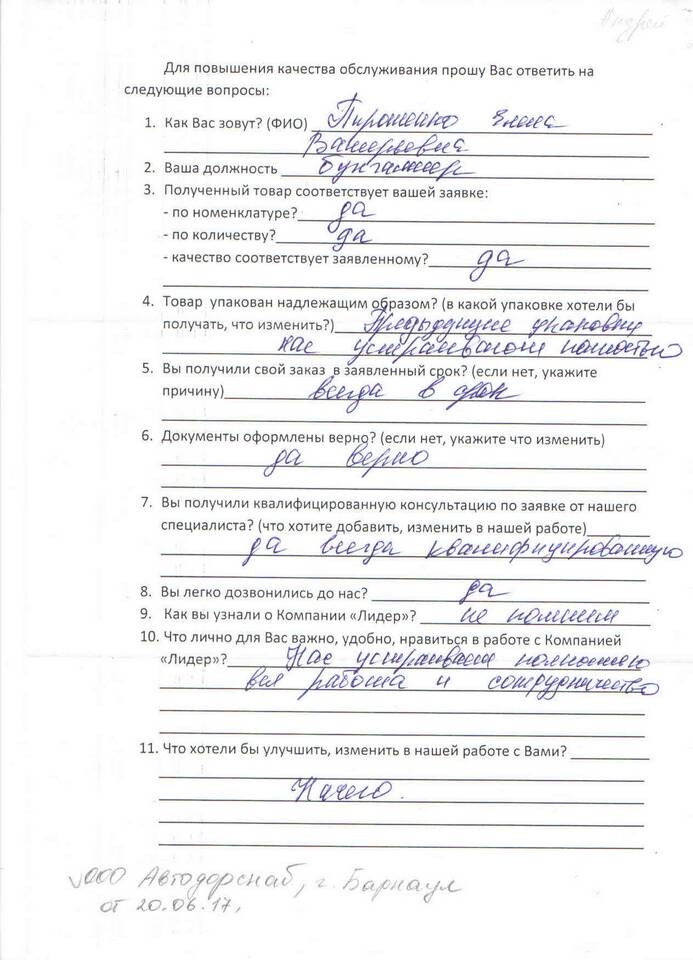 Андрей
Для повышения качества обслуживания прошу Вас ответить на
следующие вопросы:
1. Как Вас зовут? (ФИО) Пирошенко Елена
Валерьевна
2. Ваша должность бухгалтер
3. Полученный товар соответствует вашей заявке:
- по номенклатуре? да
- по количеству? да
- качество соответствует заявленному? да
4. Товар упакован надлежащим образом? (в какой упаковке хотели бы
получать, что изменить?) Предыдущие упаковки
нас устраивают полностью
5. Вы получили свой заказ в заявленный срок? (если нет, укажите
причину) всегда в срок
6. Документы оформлены верно? (если нет, укажите что изменить)
да верно
7. Вы получили квалифицированную консультацию по заявке от нашего
специалиста? (что хотите добавить, изменить в нашей работе)
да всегда квалифицированную
8. Вы легко дозвонились до нас? да
9. Как вы узнали о Компании «Лидер»? не помним
10. Что лично для Вас важно, удобно, нравиться в работе с Компанией
«Лидер»? Нас устраивает полностью
вся работа и сотрудничество
11. Что хотели бы улучшить, изменить в нашей работе с Вами?
Ничего.
ООО Автодорснаб, г. Барнаул
от 20.06.17,